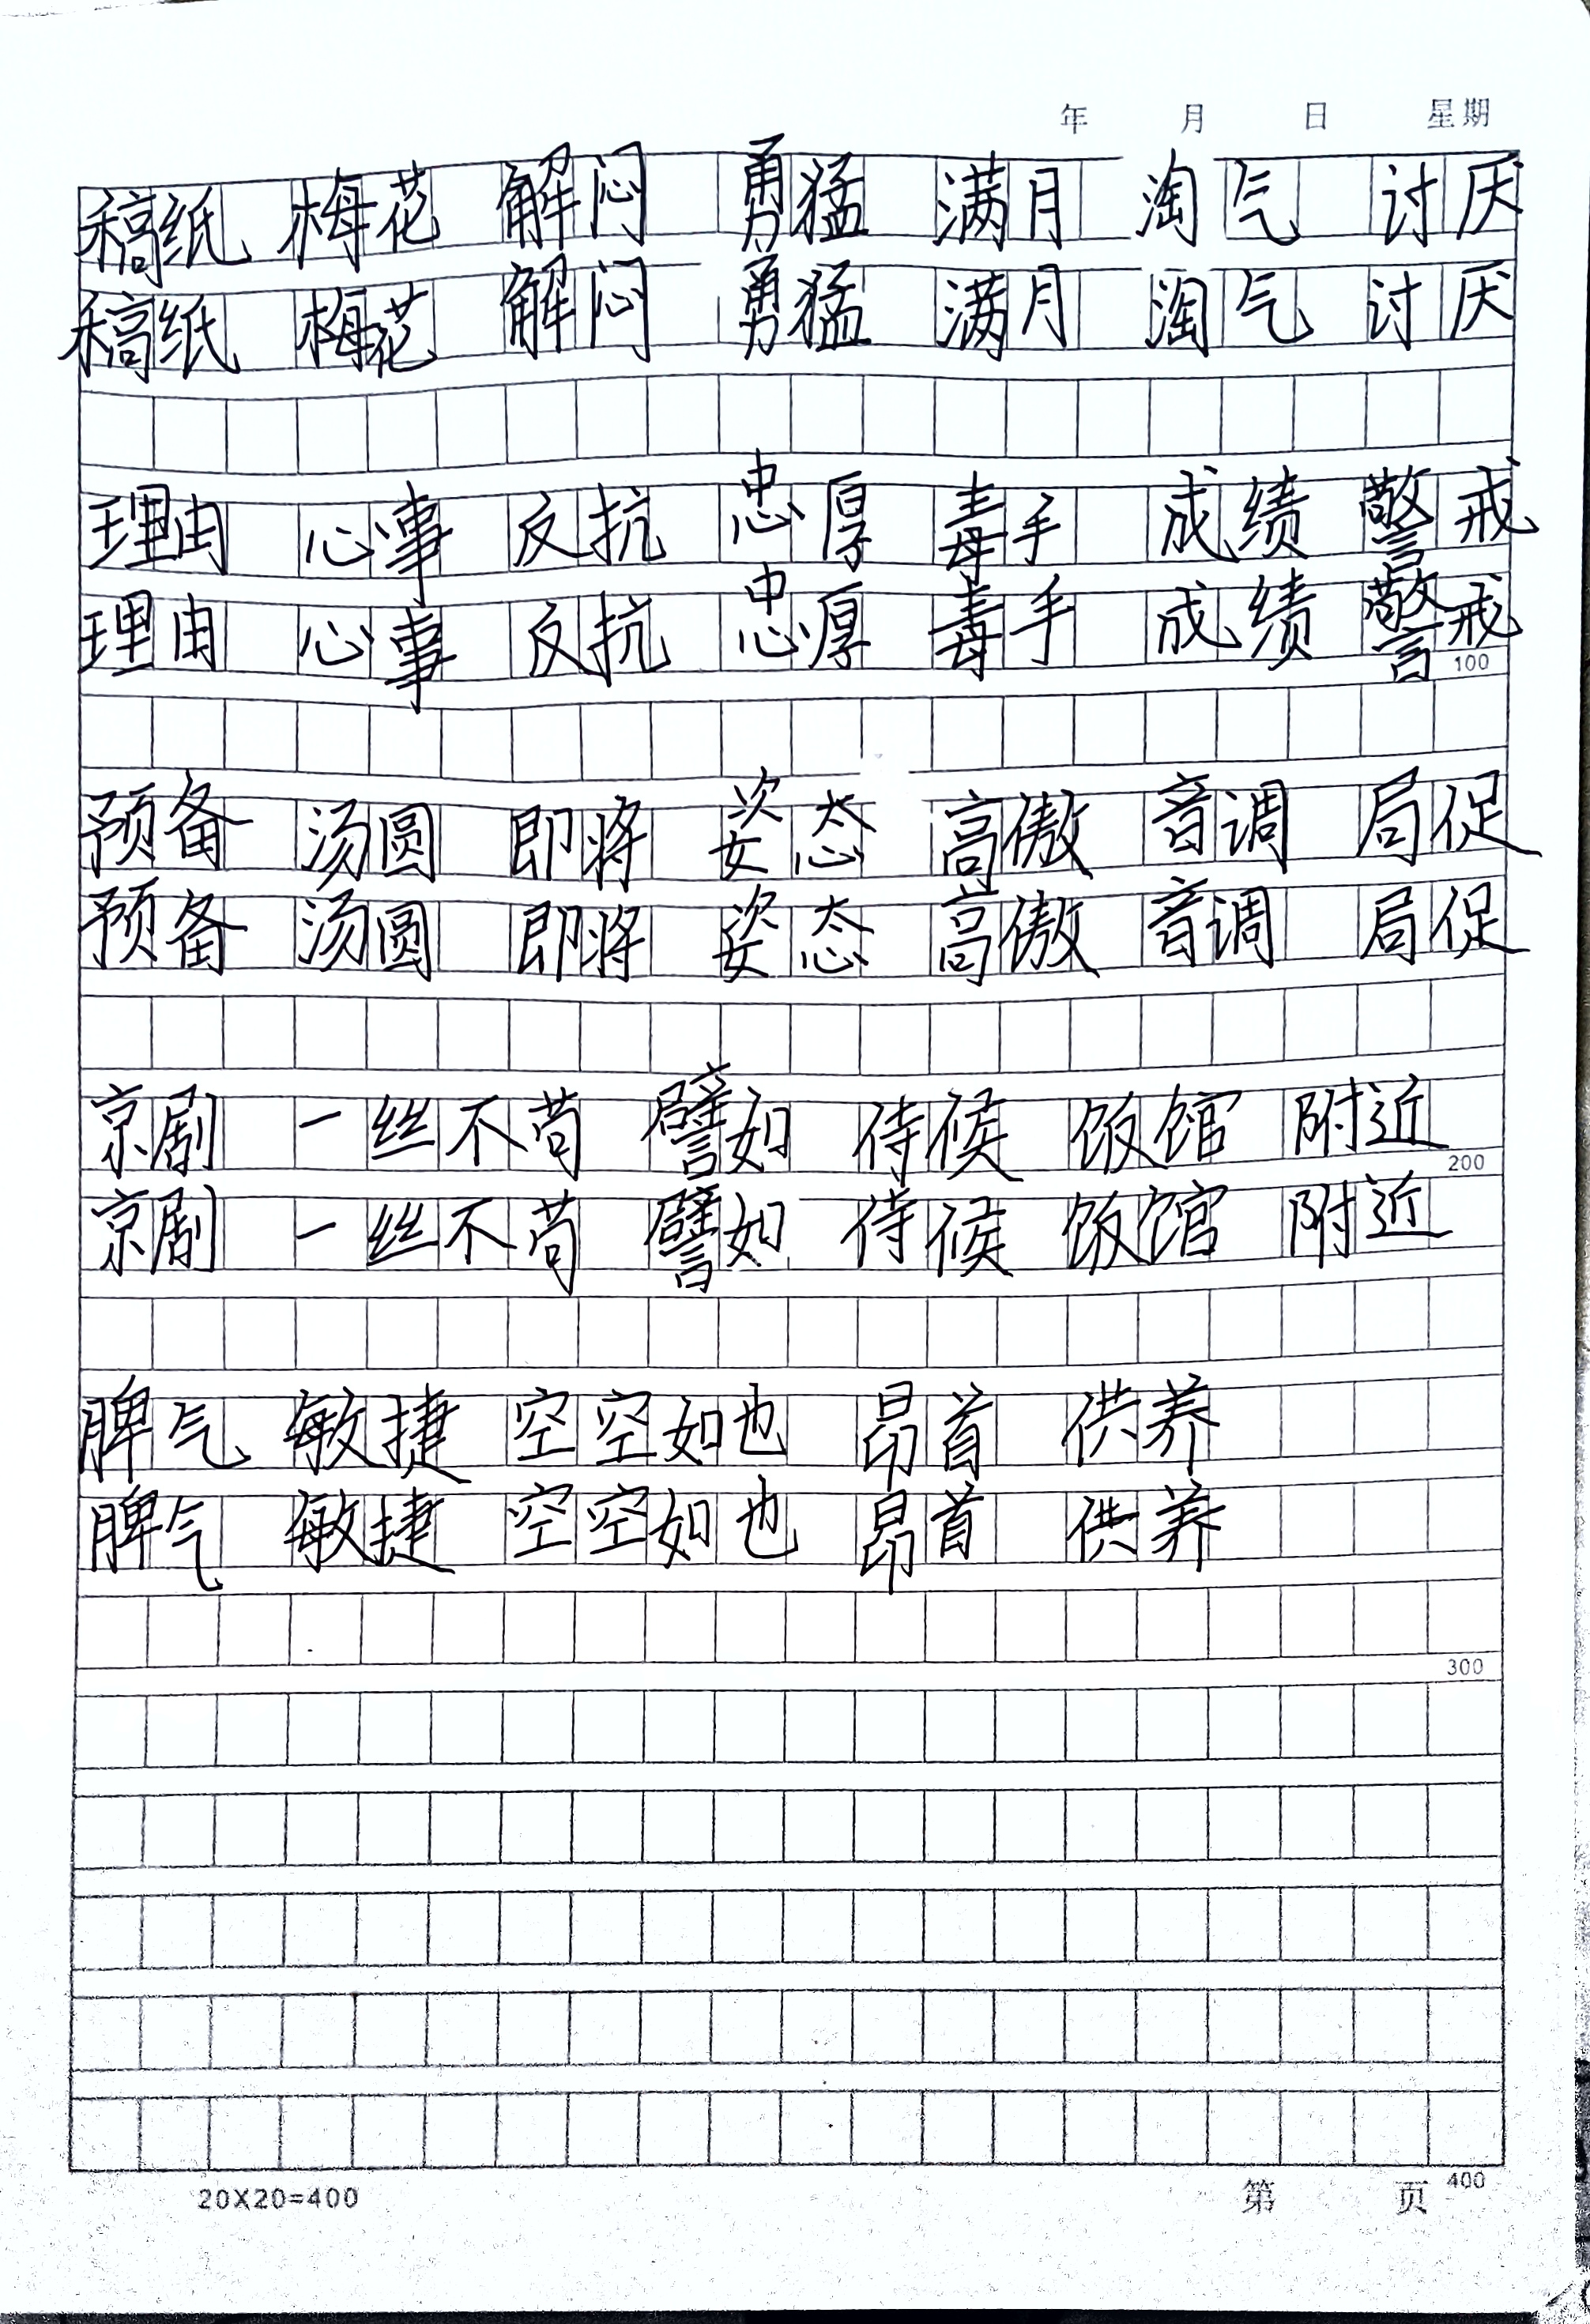 年 月 日 星期
稿纸 梅花 解闷 勇猛 满月 淘气 讨厌
稿纸 梅花 解闷 勇猛 满月 淘气 讨厌
理由 心事 反抗 忠厚 毒手 成绩 警戒
理由 心事 反抗 忠厚 毒手 成绩 警戒
100
预备 汤圆 即将 姿态 高傲 音调 局促
预备 汤圆 即将 姿态 高傲 音调 局促
京剧 一丝不苟 譬如 侍候 饭馆 附近
200
京剧 一丝不苟 譬如 侍候 饭馆 附近
脾气 敏捷 空空如也 昂首 供养
脾气 敏捷 空空如也 昂首 供养
300
400
20X20=400 第 页